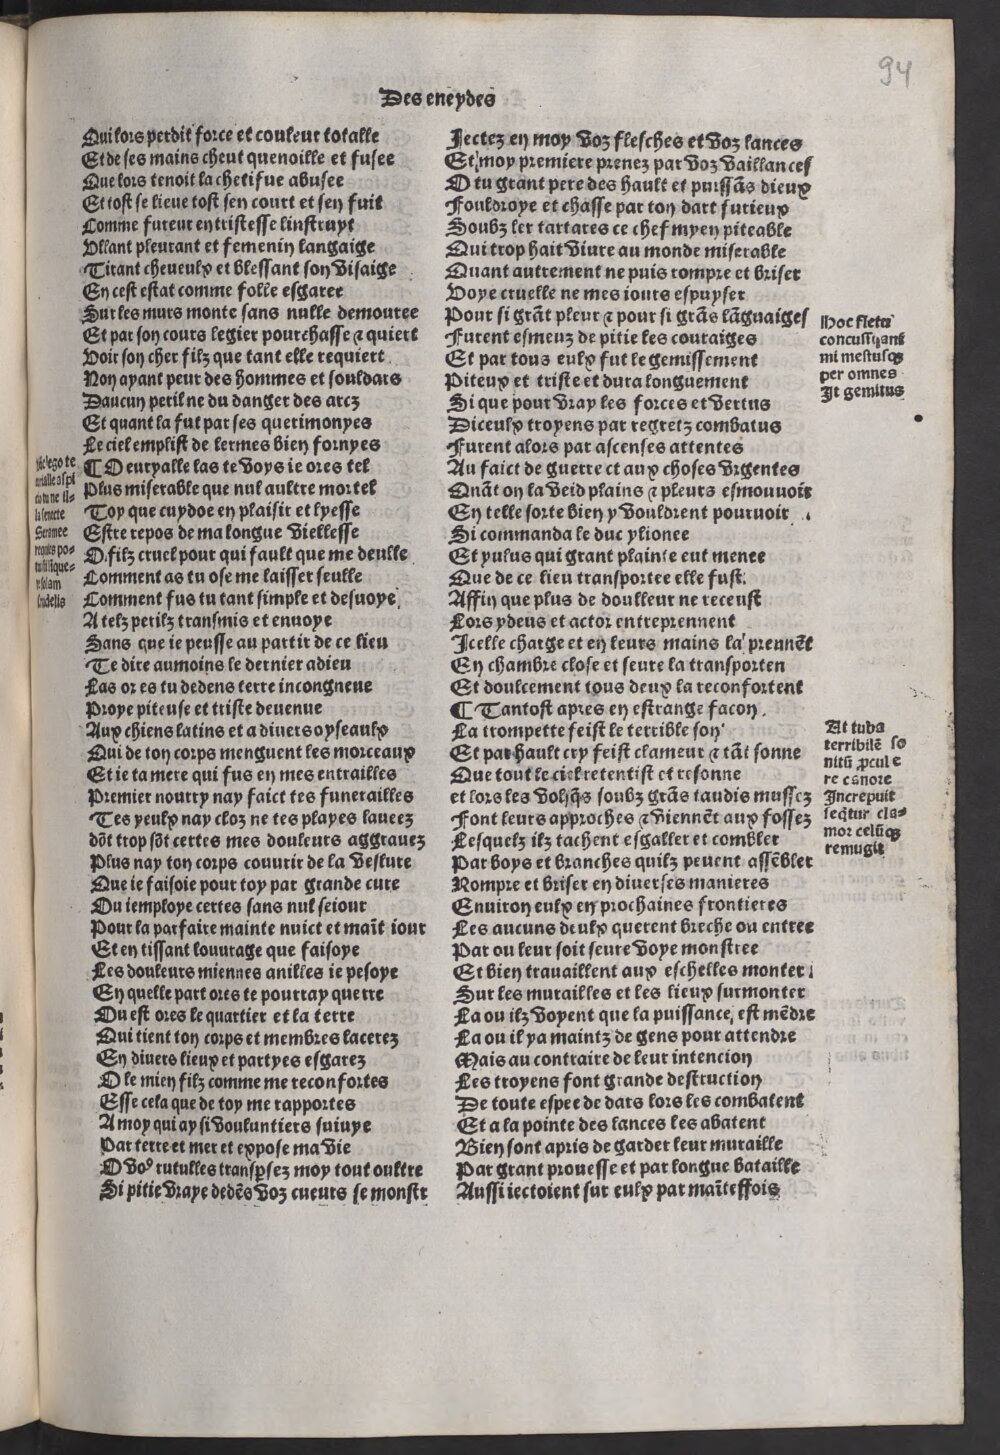 94
Des eneydes
Qui lors perdit force et couleur totalle
Et de ses mains cheut quenoille et fusee
Que lors tenoit la chetifue abusee
Et tost se lieue tost sen court et sen fuit
Comme fureur en tristesse linstruyt
Vllant pleurant et femenin langaige
Tirant cheueulx et blessant son visaige
En cest estat comme folle esgaree
Sur les murs monte sans nulle demouree
Et par son cours legier pourchasse ⁊ quiert
Voir son cher filz que tant elle requiert
Non ayant peur des hommes et souldars
Daucun peril ne du danger des arcz
Et quant la fut par ses querimonyes
Le ciel emplist de lermes bien fornyes
¶ O euryalle las te voys ie ores tel
Plus miserable que nul aultre mortel
Toy que cuydoe en plaisir et lyesse
Estre repos de ma longue viellesse
O filz cruel pour qui fault que me deulle
Comment as tu ose me laisser seulle
Comment fus tu tant simple et desuoye
A telz perilz transmis et enuoye
Sans que ie peusse au partir de ce lieu
Te dire aumoins le dernier adieu
Las ores tu dedens terre incongneue
Proye piteuse et triste deuenue
Aux chiens latins et a diuers oyseaulx
Qui de ton corps menguent les morceaux
Et ie ta mere qui fus en mes entrailles
Premier nourry nay faict tes funerailles
Tes yeulx nay cloz ne tes playes laueez
dōt trop sōt certes mes douleurs aggrauez
Plus nay ton corps couurir de la vesture
Que ie faisoie pour toy par grande cure
Ou iemploye certes sans nul seiour
Pour la parfaire mainte nuict et mait iour
Et en tissant louurage que faisoye
Les douleurs miennes anilles ie pesoye
En quelle part ores te pourray querre
Ou est ores le quartier et la terre
Qui tient ton corps et membres lacerez
En diuers lieux et partyes esgarez
O le mien filz comme me reconfortes
Esse cela que de toy me rapportes
A moy qui ay si vouluntiers suiuye
Par terre et mer et expose ma vie
O voꝰ rutulles transꝑsez moy tout oultre
Si pitie vraye dedēs voz cueurs se monstr
hūc ego te
urialle aspi
cio tu ne il-
la senecte
Seramee
requies po-
tuisti lique-
re solam
crudelis
Jectez en moy voz flesches et voz lances
Et moy premiere prenez par voz vaillances
O tu grant pere des hault et puissās dieux
Fouldroye et chasse par ton dart furieux
Soubz ler tartares ce chef myen piteable
Qui trop hait viure au monde miserable
Quant autrement ne puis rompre et briser
Voye cruelle ne mes iours espuyser
Pour si grāt pleur ⁊ pour si grās lāguaiges
Furent esmeuz de pitie les couraiges
Et par tous eulx fut le gemissement
Piteux et triste et dura longuement
Si que pour vray les forces et vertus
Diceulx troyens par regretz combatus
Furent alors par ascenses attentes
Au faict de guerre et aux choses vrgentes
Quāt on la veid plains ⁊ pleurs esmouuoir
En telle sorte bien y vouldrent pouruoir
Si commanda le duc ylionee
Et yulus qui grant plainte eut menee
Que de ce lieu transportee elle fust
Affin que plus de doulleur ne receust
Lors ydeus et actor entreprennent
Jcelle charge et en leurs mains la prennēt
En chambre close et seure la transporten
Et doulcement tous deux la reconfortent
¶ Tantost apres en estrange facon
La trompette feist le terrible son
Et par hault cry feist clameur ⁊ tāt sonne
Que tout le ciel retentist et resonne
et lors les volsq̄s soubz grās taudis mussez
Font leurs approches ⁊ viennēt aux fossez
Lesquelz ilz tachent esgaller et combler
Par boys et branches quilz peuent assēbler
Rompre et briser en diuerses manieres
Enuiron eulx en prochaines frontieres
Les aucuns deulx querent breche ou entree
Par ou leur soit seure voye monstree
Et bien trauaillent aux eschelles monter
Sur les murailles et les lieux surmonter
La ou ilz voyent que la puissance est mēdre
La ou il ya maintz de gens pour attendre
Mais au contraire de leur intencion
Les troyens font grande destruction
De toute espee de dars lors les combatent
Et a la pointe des lances les abatent
Bien sont apris de garder leur muraille
Par grant prouesse et par longue bataille
Aussi iectoient sur eulx par maīteffois
Hoc fletu
concussi ani
mi mestusqꝫ
per omnes
Jt gemitus
At tuba
terribilē so
nitū ꝓcul e
re canore
Jncrepuit
seq̄tur cla-
mor celūqꝫ
remugit